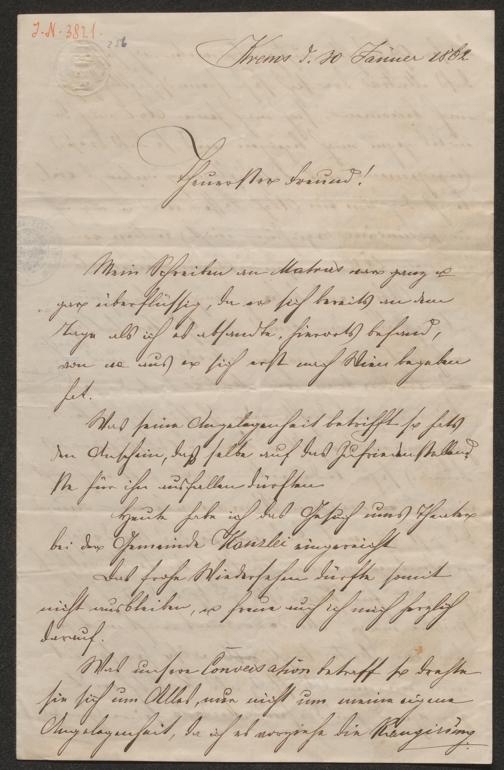 I.N. 3821.
256
Krems d. 30 Jänner 1862
Theuerster Freund!
Mein Schreiben an Matras war ganz u
gar überflüssig, da er sich bereits an dem
Tage als ich es absandte, hierorts befand,
von wo aus er sich erst nach Wien begeben
hat.
Was seine Angelegenheit betrifft so hats
den Anschein, daß selbe auf das Zufriedenstellend
ste für ihn ausfallen dürften
Heute habe ich das Gesuch ums Theater
bei der Gemeinde Kanzlei eingereicht
Das frohe Wiedersehen dürfte somit
nicht ausbleiben, u freue auch ich mich herzlich
darauf.
Was unsere Conversation betraff so drehte
sie sich um Alles, nur nicht um meine eigene
Angelegenheit, da ich es vorziehe die Rangirung